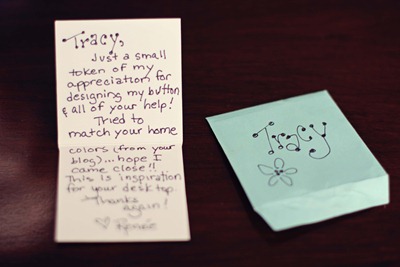 Tracy,
Just a small
token of my
appreciation for
designing my button
& all of your help!
Tried to
match your home
colors (from your
blog)... hope I
came close!!
This is inspiration
for your desktop.
Thanks
again!
Tracy